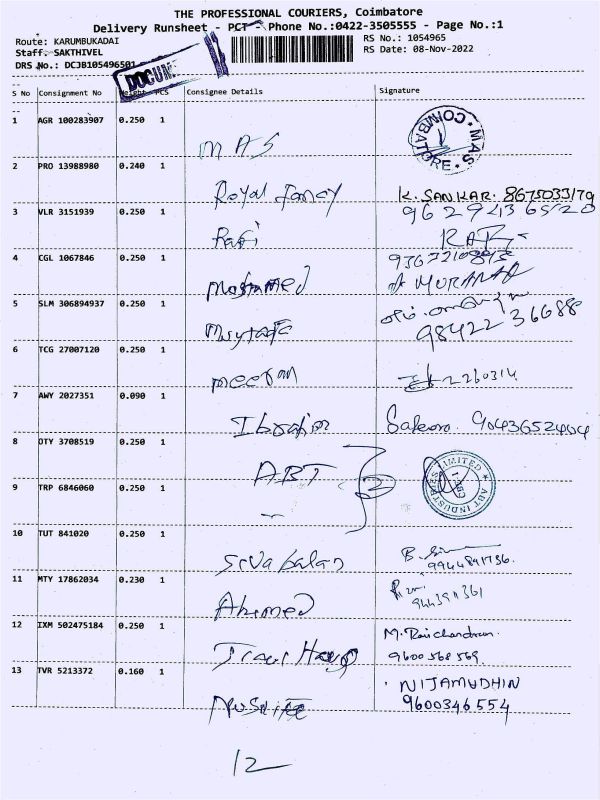 THE PROFESSIONAL COURIERS, Coimbatore
Delivery Runsheet - PCT - Phone No.:0422-3505555 - Page No.:1
Route: KARUMBUKADAI RS No.: 1054965
Staff: SAKTHIVEL RS Date: 08-Nov-2022
DRS No.: DCJB105496501
DOCUM
S No Consignment No Weight PCS Consignee Details Signature
1 AGR 100283907 0.250 1 MAS MAS COIMBATORE
2 PRO 13988980 0.240 1 Royal fancy K. SANKAR. 8675033179
3 VLR 3151939 0.250 1 Rafi
4 CGL 1067846 0.250 1 Mohamed
5 SLM 306894937 0.250 1 98422 36688
6 TCG 27007120 0.250 1
7 AWY 2027351 0.090 1 Ibrahim 9043652404
8 OTY 3708519 0.250 1 ABT 2 ABT INDUSTRIES LIMITED
9 TRP 6846060 0.250 1
10 TUT 841020 0.250 1 Siva balan
11 MTY 17862034 0.230 1 Ahamed
12 IXM 502475184 0.250 1 M. Ravichandran 9600568569
13 TVR 5213372 0.160 1 NIJAMUDHIN
9600346554
12